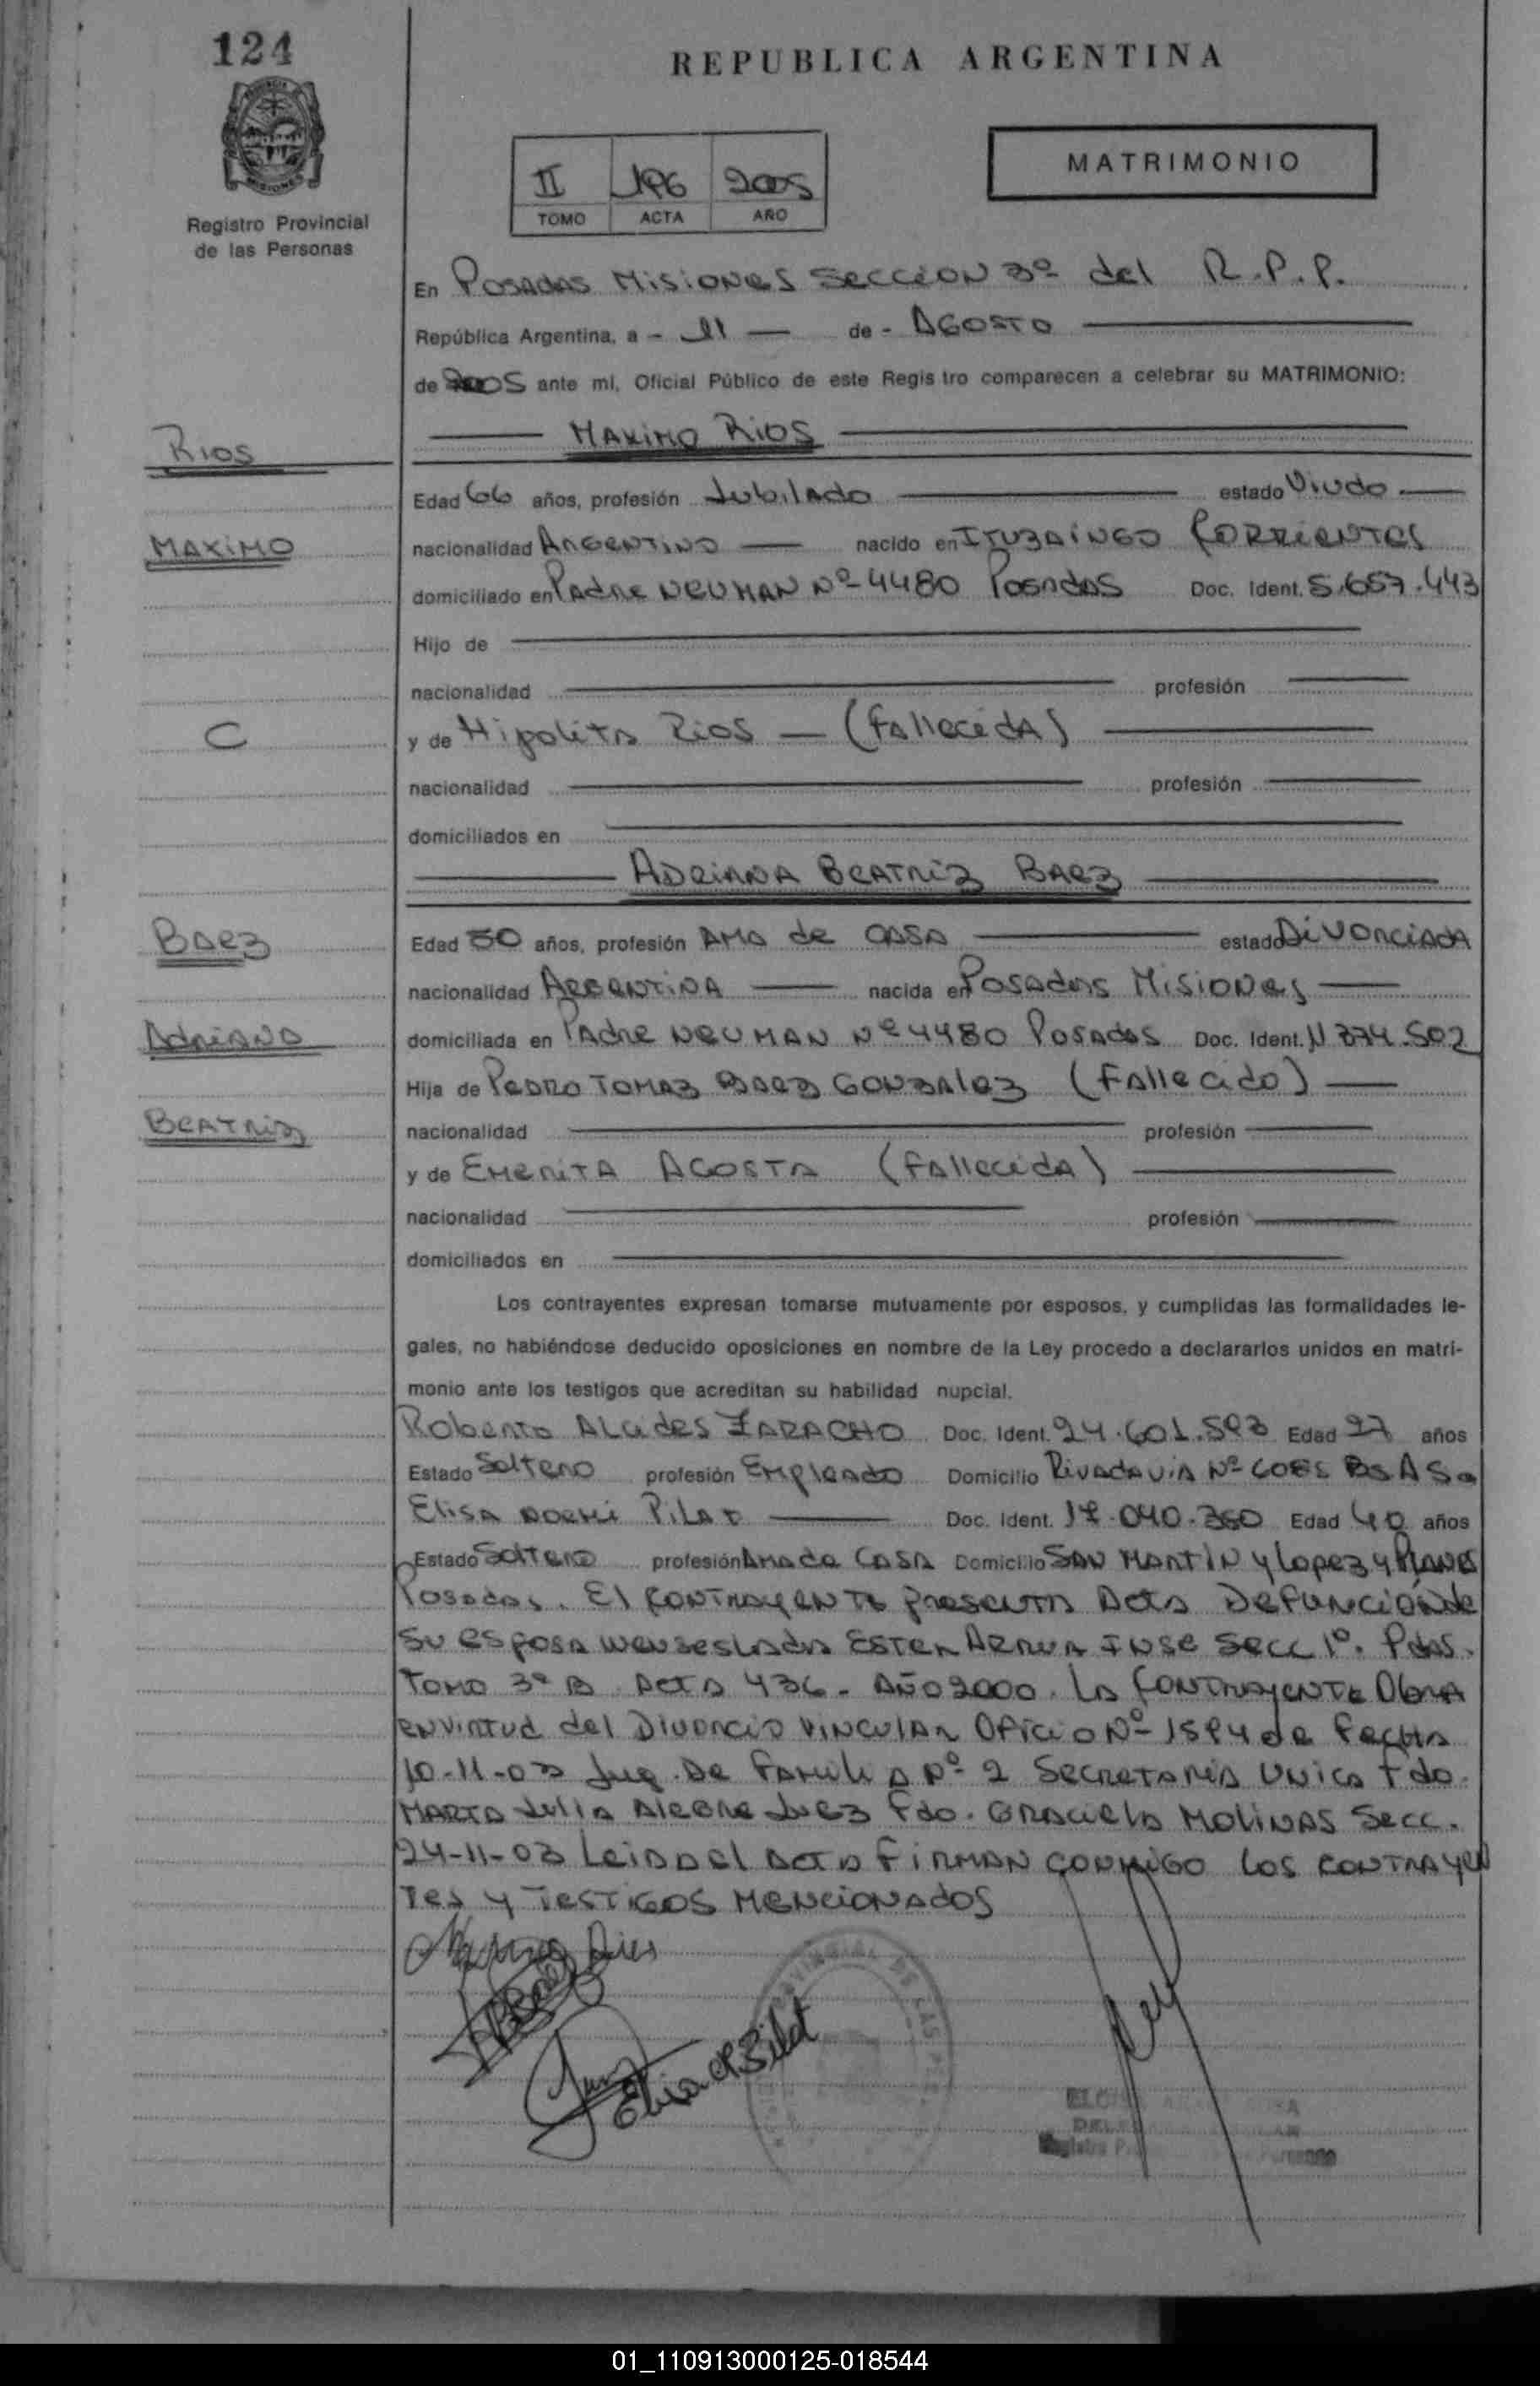 124
REPUBLICA ARGENTINA
MATRIMONIO
II 196 2005
TOMO ACTA AÑO
Registro Provincial
de las Personas
En Posadas Misiones Seccion 3º del R.P.P.
República Argentina, a - 11 — de - Agosto
de 2005 ante mi, Oficial Público de este Regis tro comparecen a celebrar su MATRIMONIO:
Maximo Rios
Rios
Edad 66 años, profesión Jubilado estado Viudo
Maximo
nacionalidad Argentino nacido en Ituzaingo Corrientes
domiciliado en Padre Neuman Nº 4480 Posadas Doc. Ident. 5.657.443
Hijo de
nacionalidad profesión
C
y de Hipolita Rios — (Fallecida)
nacionalidad profesión
domiciliados en
Adriana Beatriz Baez
Baez
Edad 50 años, profesión Ama de Casa estado Divorciada
nacionalidad Argentina nacida en Posadas Misiones
Adriana
domiciliada en Padre Neuman Nº 4480 Posadas Doc. Ident. 11.374.502
Hija de Pedro Tomaz Baez Gonzalez (Fallecido)
Beatriz
nacionalidad profesión
y de Emerita Acosta (Fallecida)
nacionalidad profesión
domiciliados en
Los contrayentes expresan tomarse mutuamente por esposos, y cumplidas las formalidades le-
gales, no habiéndose deducido oposiciones en nombre de la Ley procedo a declararlos unidos en matri-
monio ante los testigos que acreditan su habilidad nupcial.
Roberto Alcides Zaracho Doc. Ident. 24.601.593 Edad 27 años
Estado Soltero profesión Empleado Domicilio Rivadavia Nº Bs As
Elisa Noemi Pilat Doc. Ident. 17.040.360 Edad 40 años
Estado Soltera profesión Ama de Casa Domicilio San Martin y Lopez y Planes
Posadas. El contrayente presenta Acta Defunción de
su esposa Wenseslada Ester Secc 1º. Pdas.
Tomo 3º B Acta 436 - Año 2000. La contrayente Obra
en virtud del Divorcio Vincular Oficio Nº 1594 de fecha
10-11-03 Juz. De Familia Nº 2 Secretaria Unica Fdo.
Maria Julia Alegre Juez Fdo. Graciela Molinas Secc.
24-11-03 Leida el Acta Firman conmigo los contrayen
tes y Testigos Mencionados
Maximo Rios
Elisa N Pilat
01_110913000125-018544